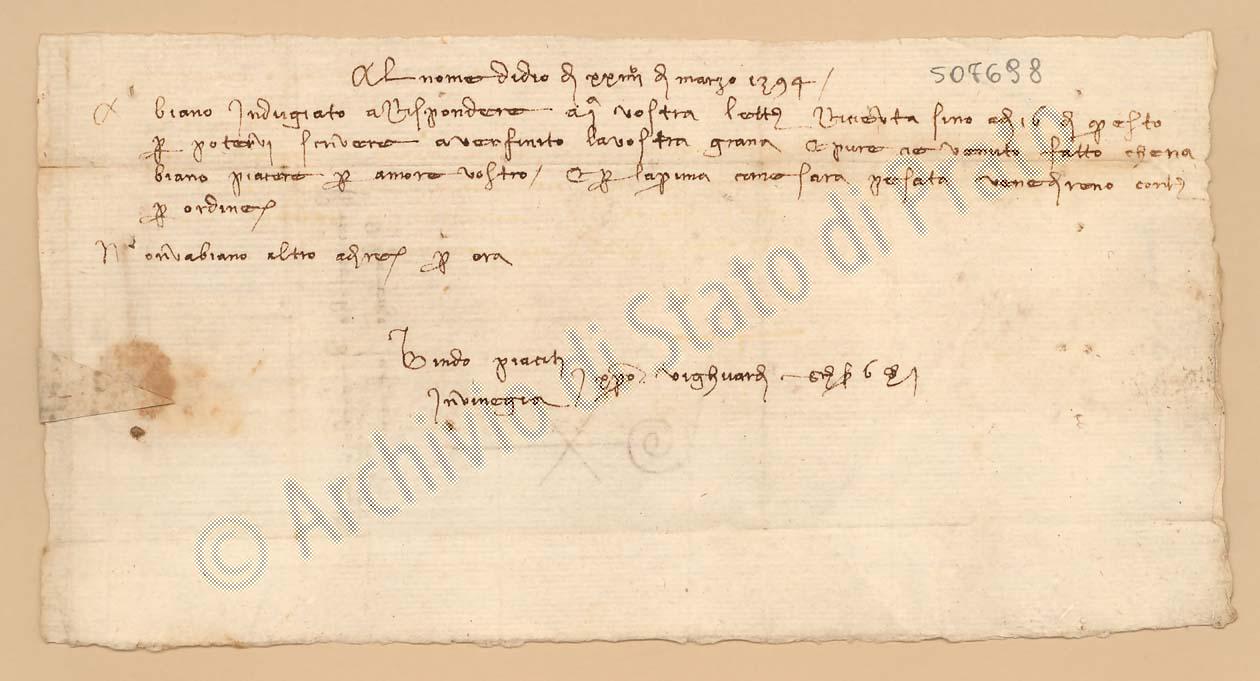 Al nome didio dì xxiiii di marzo 1394 / 507698
A
biano Indugiato a Rispondere a vostra lettᵃ Riceuta sino adì 16 di questo
p potervi scrivere averfinito lavostra grana E pure cie venuto fatto chena
biano piacere p amore vostro / E p laprima come sara pesata vene direno conto
p ordine
Nonnabiano altro a dire p ora
Bindo piaciti
Invinegia
© Archivio di Stato di Prato